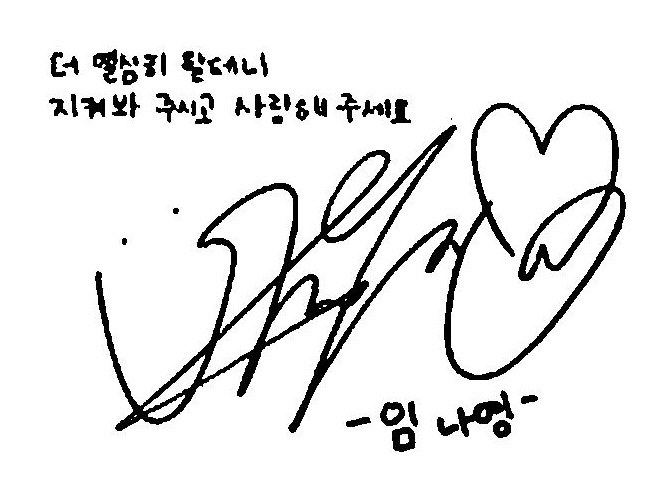 더 열심히 할테니
지켜봐 주시고 사랑해 주세요
-임나영-